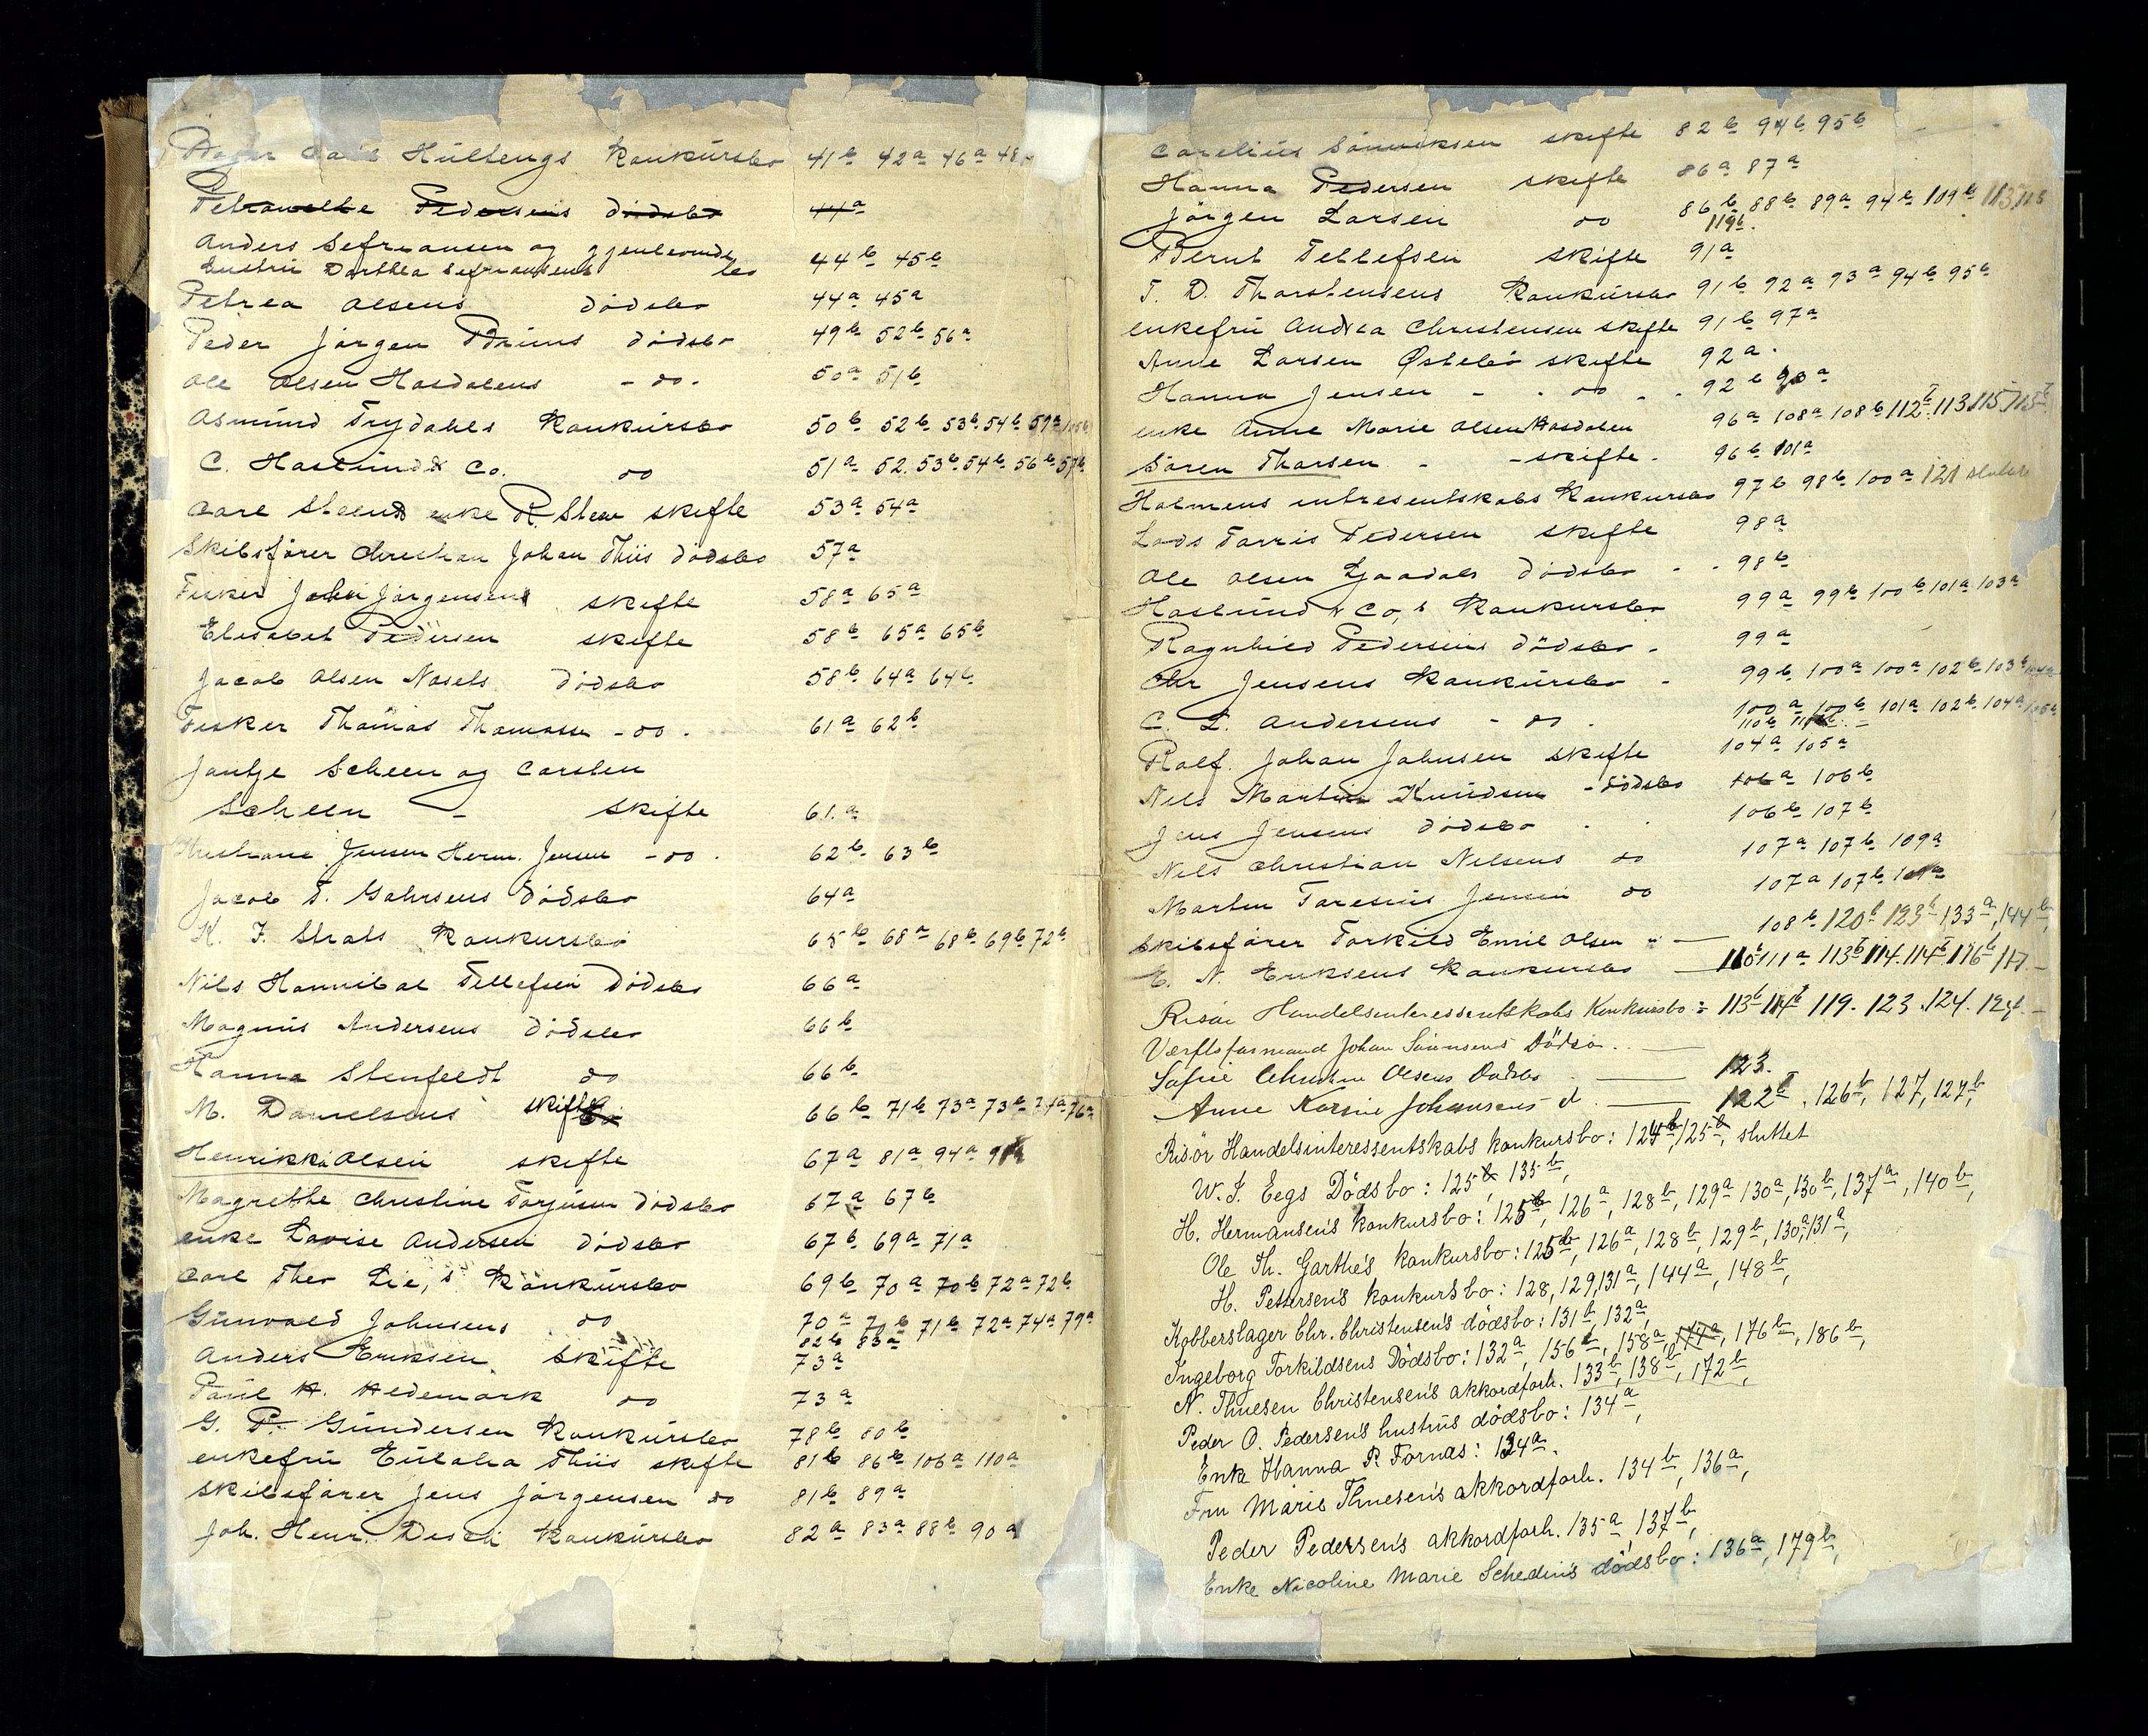 Hultengs Konkursbo 41b 42a 46a 48
Petronelle Pedersens dödsbo 44a
Anders Sefriansen og gjenlevende
hustru Dorthea Sefriansens bo 44b 45b
Petrea Olsens dödsbo 44a 45a
Peder Jörgen Bruns dödsbo 49b 52b 56a
Ole Olsen Hasdalens - do - 50a 51b
Asmund Trydahls Konkursbo 50b 52b 53b 54b 59a
C. Haslund & Co. do 51a 52. 53b 54b 56b 57b
Carl Steens enke R. Steen skifte 53a 54a
Skibsförer Christian Johan Thiis dödsbo 57a
Fisker John Jörgensens skifte 58a 65a
Elisabet Pedersen skifte 58b 65a 65b
Jacob Olsen Nasels dödsbo 58b 64a 64b
Fisker Thomas Thomassen - do - 61a 62b
Jantje Scheen og Carsten
Scheen - skifte 61.a
Jensen Herm. Jensen - do - 62b 63b
Jacob T. Gahrsens dödsbo 64a
K. F. Strats Konkursbo 65b 68a 68b 69b 72b
Nils Hannibal Tellefsen dödsbo 66a
Magnus Andersens dödsbo 66b
Hanna Stenfeldt do 66b
M. Danielsens skifte 66b 71b 73a 73b 74a 76a
Henrikka Olsen skifte 67a 81a 94a
Magrethe Christine Torjusen dödsbo 67a 67b
enke Lovise Andersen dödsbo 67b 69a 71a
Carl Theo Lie,s Konkursbo 69b 70a 70b 72a 72b
Gunvald Johnsens do 70a 70b 71b 72a 74a 79a
82b 83a
Anders Eriksen skifte 73a
Paul H. Hedemark do 73a
G. P. Gundersen Konkursbo 78b 80b
enkefru Eulalia Thiis skifte 81b 86b 106a 110a
skibsförer Jens Jörgensen do 81b 89a
Joh. Henr. Konkursbo 82a 83a 88b 90a
Carelius Sönniksen skifte 82b 94b 95b
Hanna Pedersen skifte 86a 87a
Jörgen Larsen do 86b 88b 89a 94b 109b 113
119b.
Bernt Tellefsen skifte 91a
T. D. Thorstensens Konkursbo 91b 92a 93a 94b 95b
enkefru Andrea Christensen skifte 91b 97a
Anne Larsen Östebö skifte 92a
Hanna Jensen - - do - - 92b 93a
enke Anne Marie Olsen Hasdalen 96a 108a 108b 112b 113 115 115b
Sören Thorsen - - skifte - 96b 101a
Holmens interesentskabs Konkursbo 97b 98b 100a 121 sluttet
Lods Torris Pedersen skifte 98a
Ole Olsen dödsbo - - 98b
Haslund & Co,s Konkursbo 99a 99b 100b 101a 103a
Ragnhild Pedersens dödsbo - 99a
Chr Jensens Konkursbo - 99b 100a 100a 102b 103b
C. L. Andersens - do - 100a 100b 101a 102b 104a 105a
110b
Rolf Johan Johnsen skifte 104a 105a
Nils Martin Knudsen - dödsbo 106a 106b
Jens Jensens dödsbo - 106b 107b
Nils Christian Nilsens do 107a 107b 109a
Marten Taresius Jensen do 107a 107b
Skibsförer Torkild Emil Olsen " — 108b 120b 123b 133a, 144b,
E. N. Eriksens Konkursbo — 110b 111a 113b 114. 114b 116b 117 -
Risör Handelsinteressentskabs Konkursbo : 113b 114b 119. 123. 124. 124. -
Værftsformand Johan Sörensens Dödsbo. —
Sofie Olsens Dödsbo — 123.
Anne Karine Johansens d — 122b, 126b, 127, 127b,
Risör Handelsinteressentskabs konkursbo: 124b, 125b, sluttet
W. J. Eegs Dödsbo: 125b, 135b,
H. Hermansen's konkursbo: 125b, 126a, 128b, 129a 130a, 130b, 137a, 140b,
Ole Th. Garthe's konkursbo: 125b, 126a, 128b, 129b, 130a, 131a,
H. Pettersen's konkursbo: 128, 129, 131a, 144a, 148b,
Kobberslager Chr. Christensen's dödsbo: 131b, 132a,
Ingeborg Torkildsens Dödsbo: 132a, 156b, 158a, 177a, 176b, 186b,
N. Thuesen Christensen's akkordforh. 133b, 138b, 172b,
Peder O. Pedersen's hustrus dödsbo: 134a,
Enke Hanna P. Fornas: 134a.
Fru Marie Thuesen's akkordforh. 134b, 136a,
Peder Pedersen's akkordforh. 135a, 137b,
Enke Nicoline Marie Schedin's dödsbo: 136a, 179b,